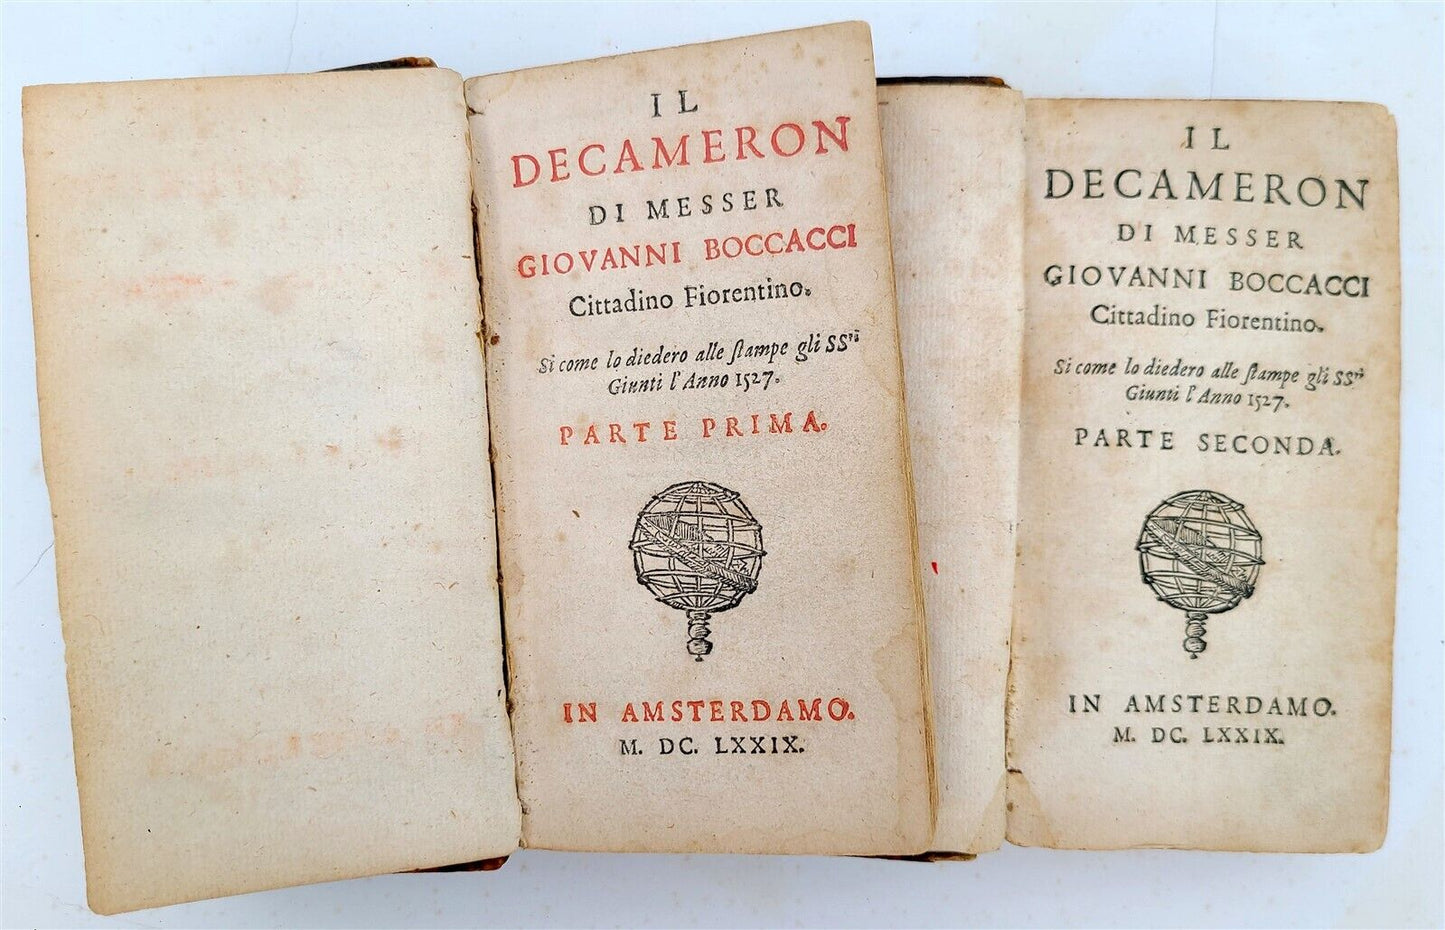 IL
DECAMERON
DI MESSER
GIOVANNI BOCCACCI
Cittadino Fiorentino.
Si come lo diedero alle ſtampe gli SSri
Giunti l'Anno 1527.
PARTE PRIMA.
IN AMSTERDAMO.
M. DC. LXXIX.
IL
DECAMERON
DI MESSER
GIOVANNI BOCCACCI
Cittadino Fiorentino.
Si come lo diedero alle ſtampe gli SSri
Giunti l'Anno 1527.
PARTE SECONDA.
IN AMSTERDAMO.
M. DC. LXXIX.